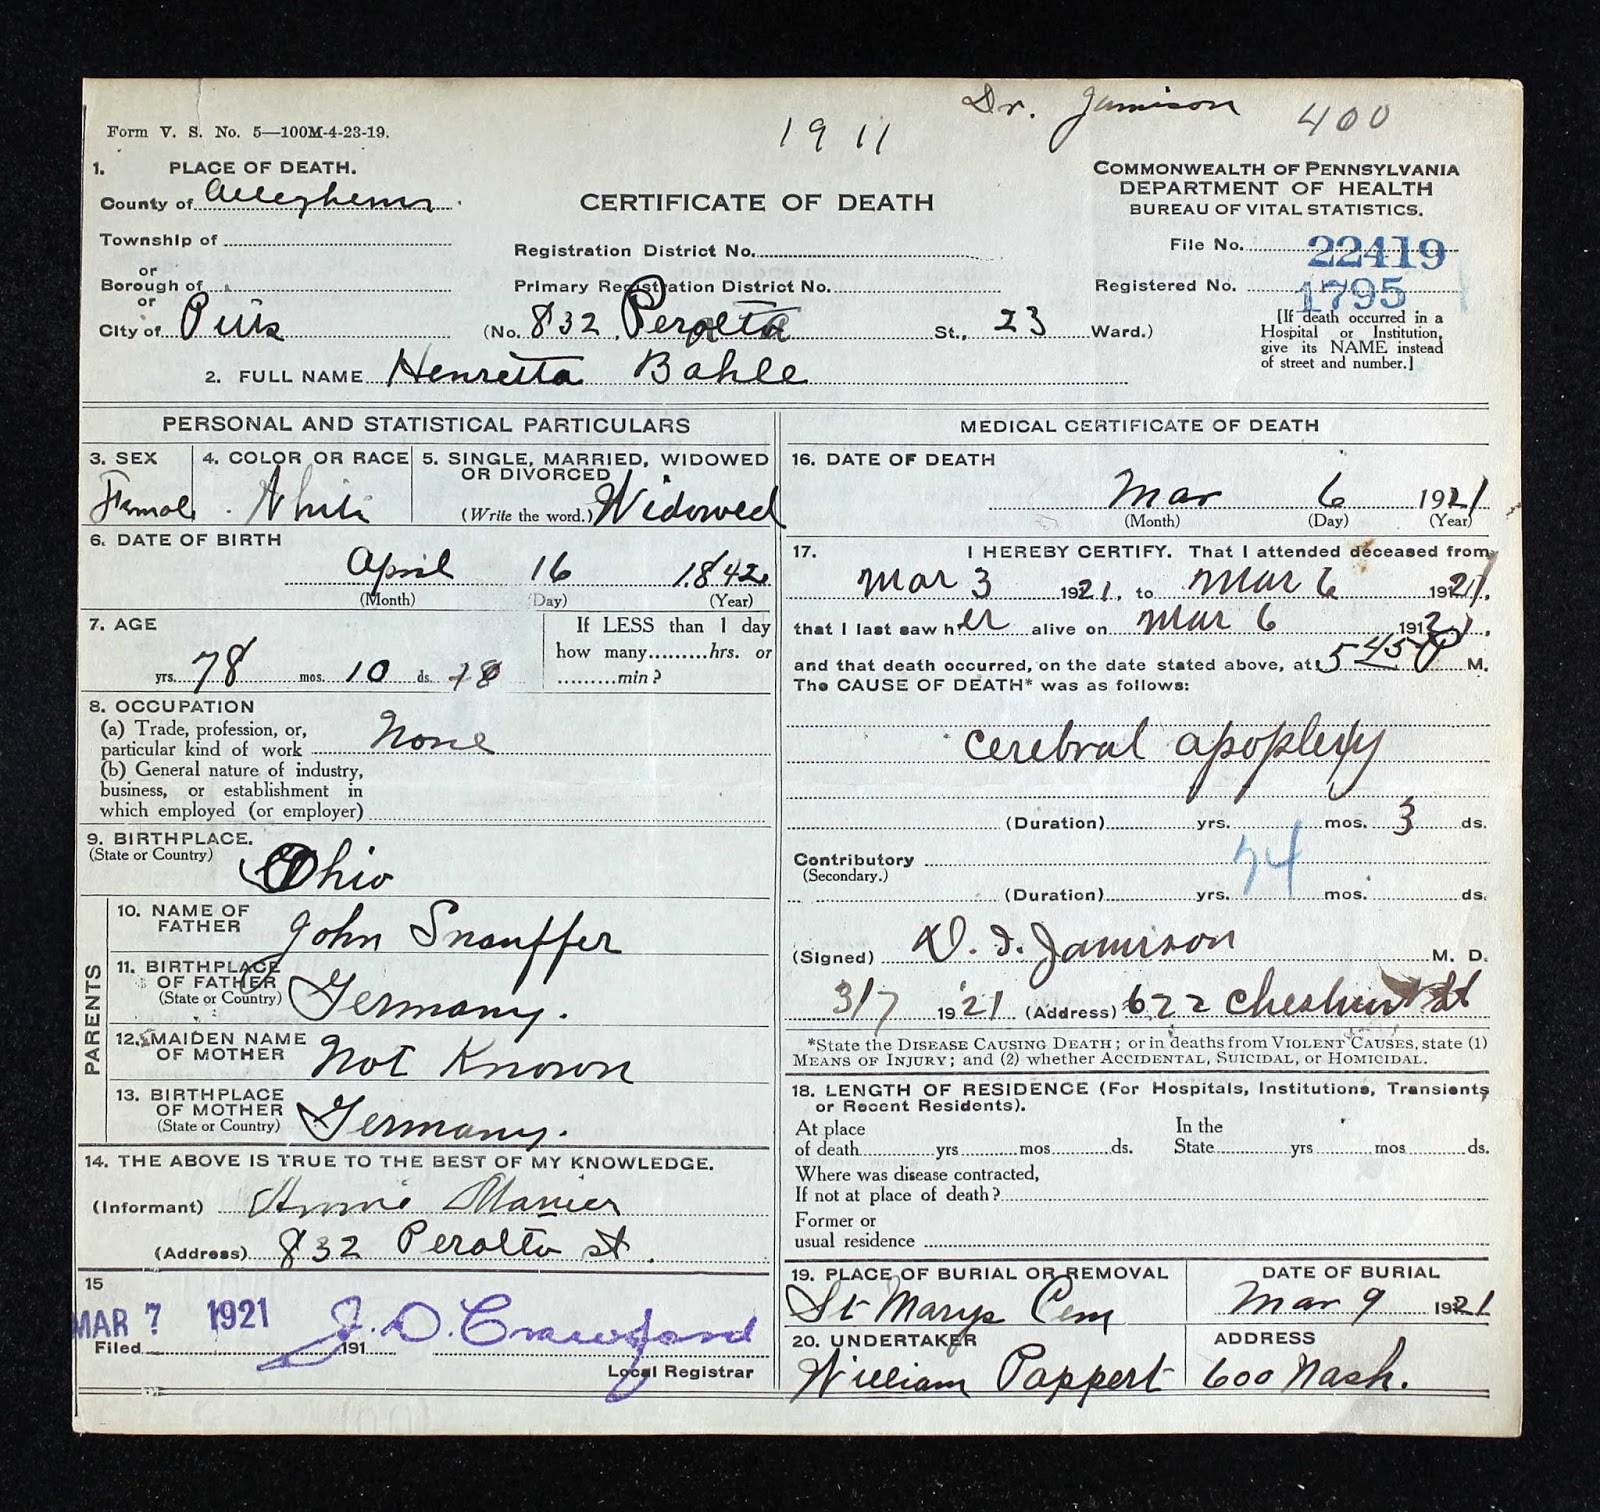 Dr. Jamison 400
1911
Form V. S. No. 5—100M-4-23-19.
1. PLACE OF DEATH.
County of Allegheny.
Township of
or
Borough of
or
City of Pitts
CERTIFICATE OF DEATH
Registration District No.
Primary Registration District No.
(No. 832 Peralta St., 23 Ward.)
COMMONWEALTH OF PENNSYLVANIA
DEPARTMENT OF HEALTH
BUREAU OF VITAL STATISTICS.
File No. 22419
Registered No. 1795
[If death occurred in a
Hospital or Institution,
give its NAME instead
of street and number.]
2. FULL NAME Henrietta Bahle
PERSONAL AND STATISTICAL PARTICULARS
3. SEX
Female
4. COLOR OR RACE
White
5. SINGLE, MARRIED, WIDOWED
OR DIVORCED
(Write the word.) Widowed
6. DATE OF BIRTH
April 16 1842
(Month) (Day) (Year)
7. AGE
yrs. 78 mos. 10 ds. 18
If LESS than 1 day
how many.........hrs. or
.........min?
8. OCCUPATION
(a) Trade, profession, or,
particular kind of work None
(b) General nature of industry,
business, or establishment in
which employed (or employer)
9. BIRTHPLACE.
(State or Country)
Ohio
PARENTS
10. NAME OF
FATHER
John Snauffer
11. BIRTHPLACE
OF FATHER
(State or Country)
Germany.
12. MAIDEN NAME
OF MOTHER
Not Known
13. BIRTHPLACE
OF MOTHER
(State or Country)
Germany.
14. THE ABOVE IS TRUE TO THE BEST OF MY KNOWLEDGE.
(Informant) Annie Manier
(Address) 832 Peralta St.
15
MAR 7 1921
Filed 191
J. D. Crawford
Local Registrar
MEDICAL CERTIFICATE OF DEATH
16. DATE OF DEATH
Mar 6 1921
(Month) (Day) (Year)
17. I HEREBY CERTIFY. That I attended deceased from
Mar 3 1921, to Mar 6 1921,
that I last saw her alive on Mar 6 1921,
and that death occurred, on the date stated above, at 5 45 P M.
The CAUSE OF DEATH* was as follows:
cerebral apoplexy
(Duration) yrs. mos. 3 ds.
Contributory
(Secondary.)
74
(Duration) yrs. mos. ds.
(Signed) D. I. Jamison M. D.
3/7 1921 (Address) 622 Chestnut St
*State the DISEASE CAUSING DEATH; or in deaths from VIOLENT CAUSES, state (1)
MEANS OF INJURY; and (2) whether ACCIDENTAL, SUICIDAL, or HOMICIDAL.
18. LENGTH OF RESIDENCE (For Hospitals, Institutions, Transients
or Recent Residents).
At place
of death yrs mos ds.
In the
State yrs mos ds.
Where was disease contracted,
If not at place of death?
Former or
usual residence
19. PLACE OF BURIAL OR REMOVAL
St Marys Cem
DATE OF BURIAL
Mar 9 1921
20. UNDERTAKER
William Pappert
ADDRESS
600 Nash.